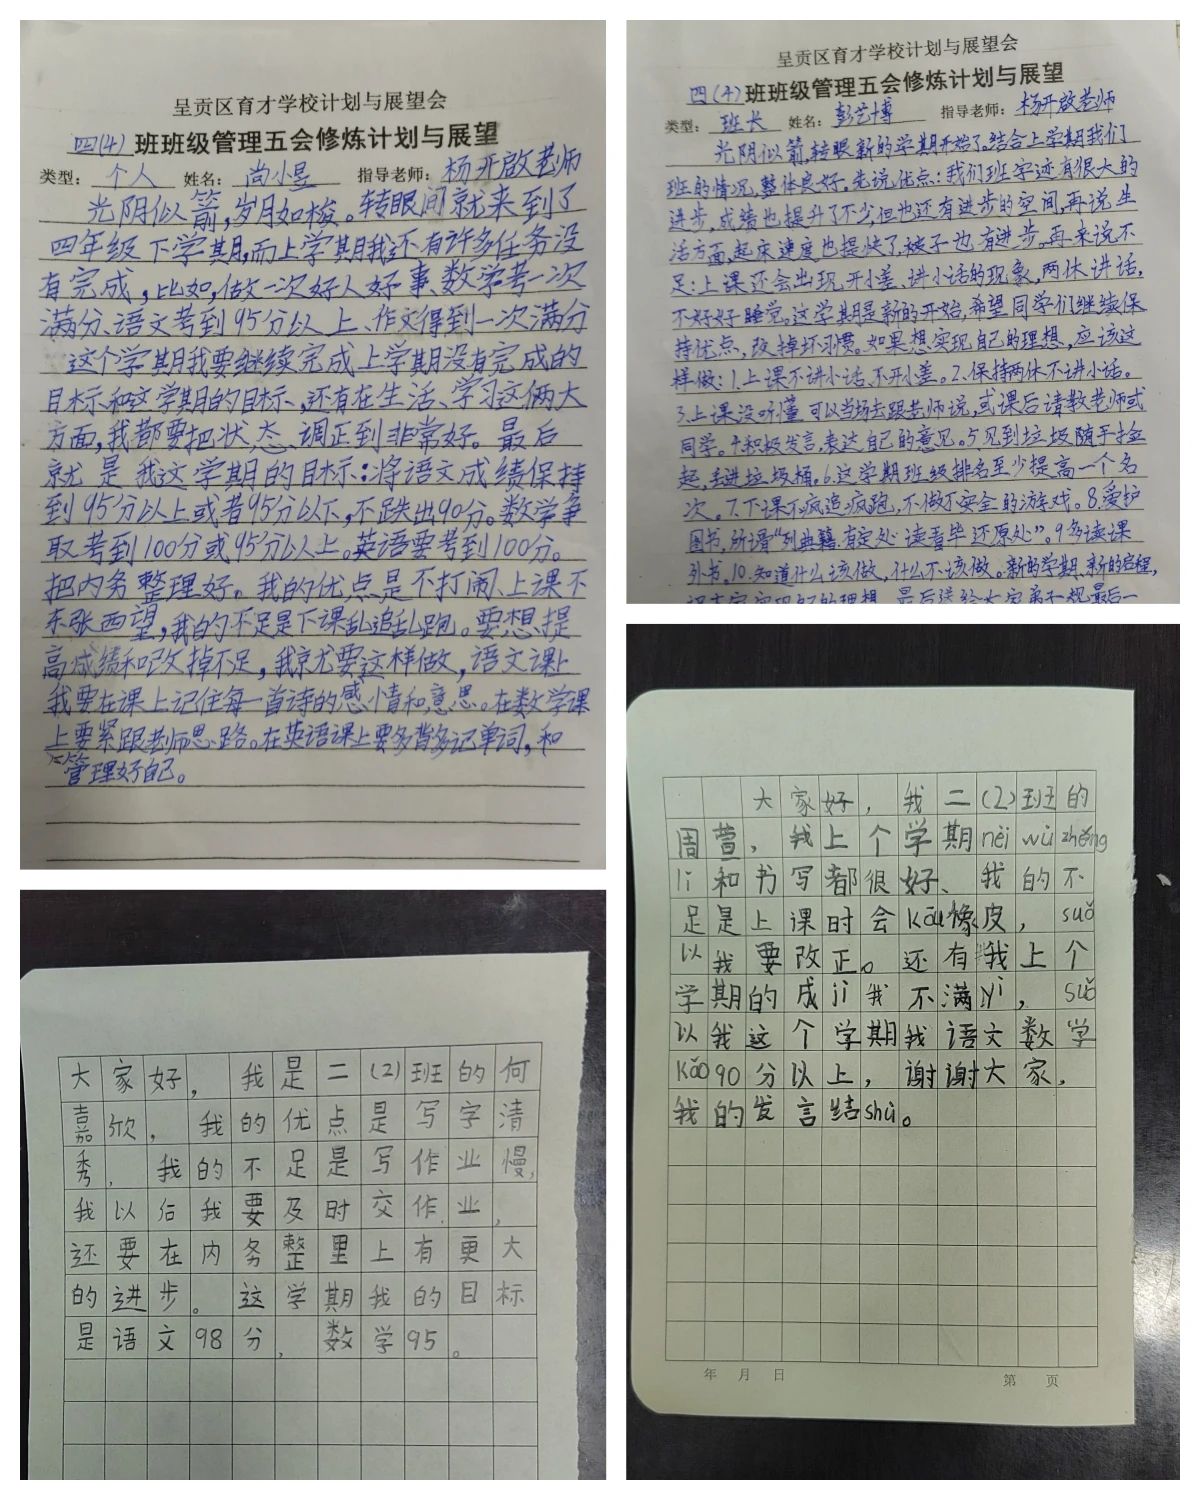 呈贡区育才学校计划与展望会
四(4)班班级管理五会修炼计划与展望
类型: 个人 姓名: 尚小昱 指导老师: 杨开啟老师
光阴似箭,岁月如梭。转眼间就来到了
四年级下学期,而上学期我还有许多任务没
有完成,比如,做一次好人好事、数学考一次
满分、语文考到95分以上、作文得到一次满分
这个学期我要继续完成上学期没有完成的
目标和这学期的目标,还有在生活、学习这俩大
方面,我都要把状态调正到非常好。最后
就是我这学期的目标:将语文成绩保持
到95分以上或者95分以下,不跌出90分。数学争
取考到100分或95分以上。英语要考到100分。
把内务整理好。我的优点是不打闹、上课不
东张西望,我的不足是下课乱追乱跑。要想提
高成绩和改掉不足,我就要这样做,语文课上
我要在课上记住每一首诗的感情和意思。在数学课
上要紧跟老师思路。在英语课上要多背多记单词,和
管理好自己。
呈贡区育才学校计划与展望会
四(4)班班级管理五会修炼计划与展望
类型: 班长 姓名: 彭艺博 指导老师: 杨开啟老师
光阴似箭,转眼新的学期开始了。结合上学期我们
班的情况,整体良好。先说优点:我们班字迹有很大的
进步,成绩也提升了不少,但也还有进步的空间,再说生
活方面,起床速度也提快了,被子也有进步。再来说不
足:上课还会出现开小差、讲小话的现象,两休讲话,
不好好睡觉。这学期是新的开始,希望同学们继续保
持优点,改掉坏习惯。如果想实现自己的理想,应该这
样做:1.上课不讲小话、不开小差。2.保持两休不讲小话。
3.上课没听懂可以当场去跟老师说,或课后请教老师或
同学。4.积极发言,表达自己的意见。5.见到垃圾随手捡
起,丢进垃圾桶。6.这学期班级排名至少提高一个名
次。7.下课不疯追疯跑,不做不安全的游戏。8.爱护
图书,所谓“列典籍有定处 读看毕还原处”。9.多读课
外书。10.知道什么该做,什么不该做。新的学期、新的启程,
最后送给大家弟子规最后一
大家好,我是二(2)班的何
嘉欣,我的优点是写字清
秀,我的不足是写作业慢,
我以后我要及时交作业,
还要在内务整里上有更大
的进步。这学期我的目标
是语文98分,数学95。
大家好,我二(2)班的
周萱,我上个学期nèi wù zhěng
lǐ和书写都很好、我的不
足是上课时会kōu橡皮,suǒ
以我要改正。还有我上个
学期的成jì我不满yì,suǒ
以我这个学期我语文数学
kǎo90分以上,谢谢大家,
我的发言结shù。
年 月 日 第 页